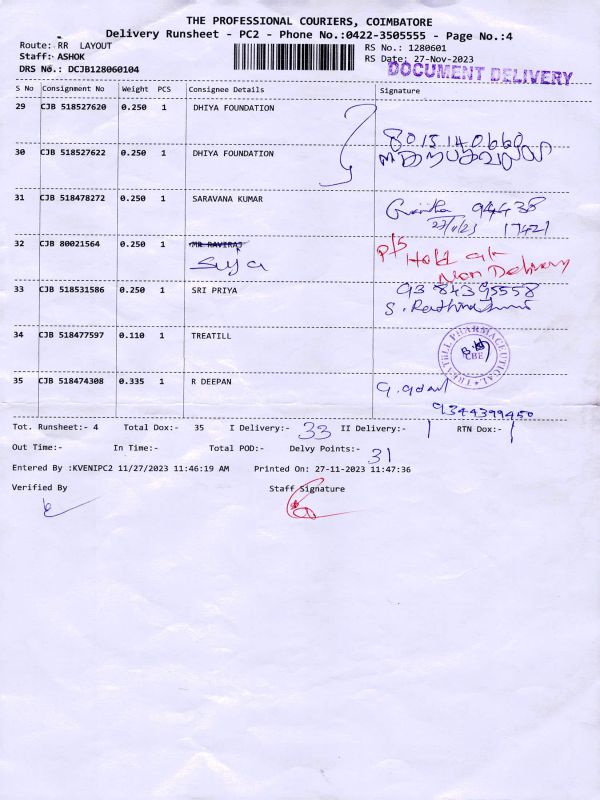 THE PROFESSIONAL COURIERS, COIMBATORE
Delivery Runsheet - PC2 - Phone No.:0422-3505555 - Page No.:4
Route: RR LAYOUT
RS No.: 1280601
Staff: ASHOK
RS Date: 27-Nov-2023
DRS No.: DCJB128060104
DOCUMENT DELIVERY
S No Consignment No Weight PCS Consignee Details Signature
29 CJB 518527620 0.250 1 DHIYA FOUNDATION
8015140660
30 CJB 518527622 0.250 1 DHIYA FOUNDATION
31 CJB 518478272 0.250 1 SARAVANA KUMAR
94438
17421
32 CJB 80021564 0.250 1 MR RAVIRAJ
Suja
Hold
Non Delivery
33 CJB 518531586 0.250 1 SRI PRIYA
9384395558
34 CJB 518477597 0.110 1 TREATILL
TREATILL PHARMACEUTICAL
CBE
35 CJB 518474308 0.335 1 R DEEPAN
9344399450
Tot. Runsheet:- 4 Total Dox:- 35 I Delivery:- 33 II Delivery:- 1 RTN Dox:- 1
Out Time:- In Time:- Total POD:- Delvy Points:- 31
Entered By :KVENIPC2 11/27/2023 11:46:19 AM Printed On: 27-11-2023 11:47:36
Verified By Staff Signature